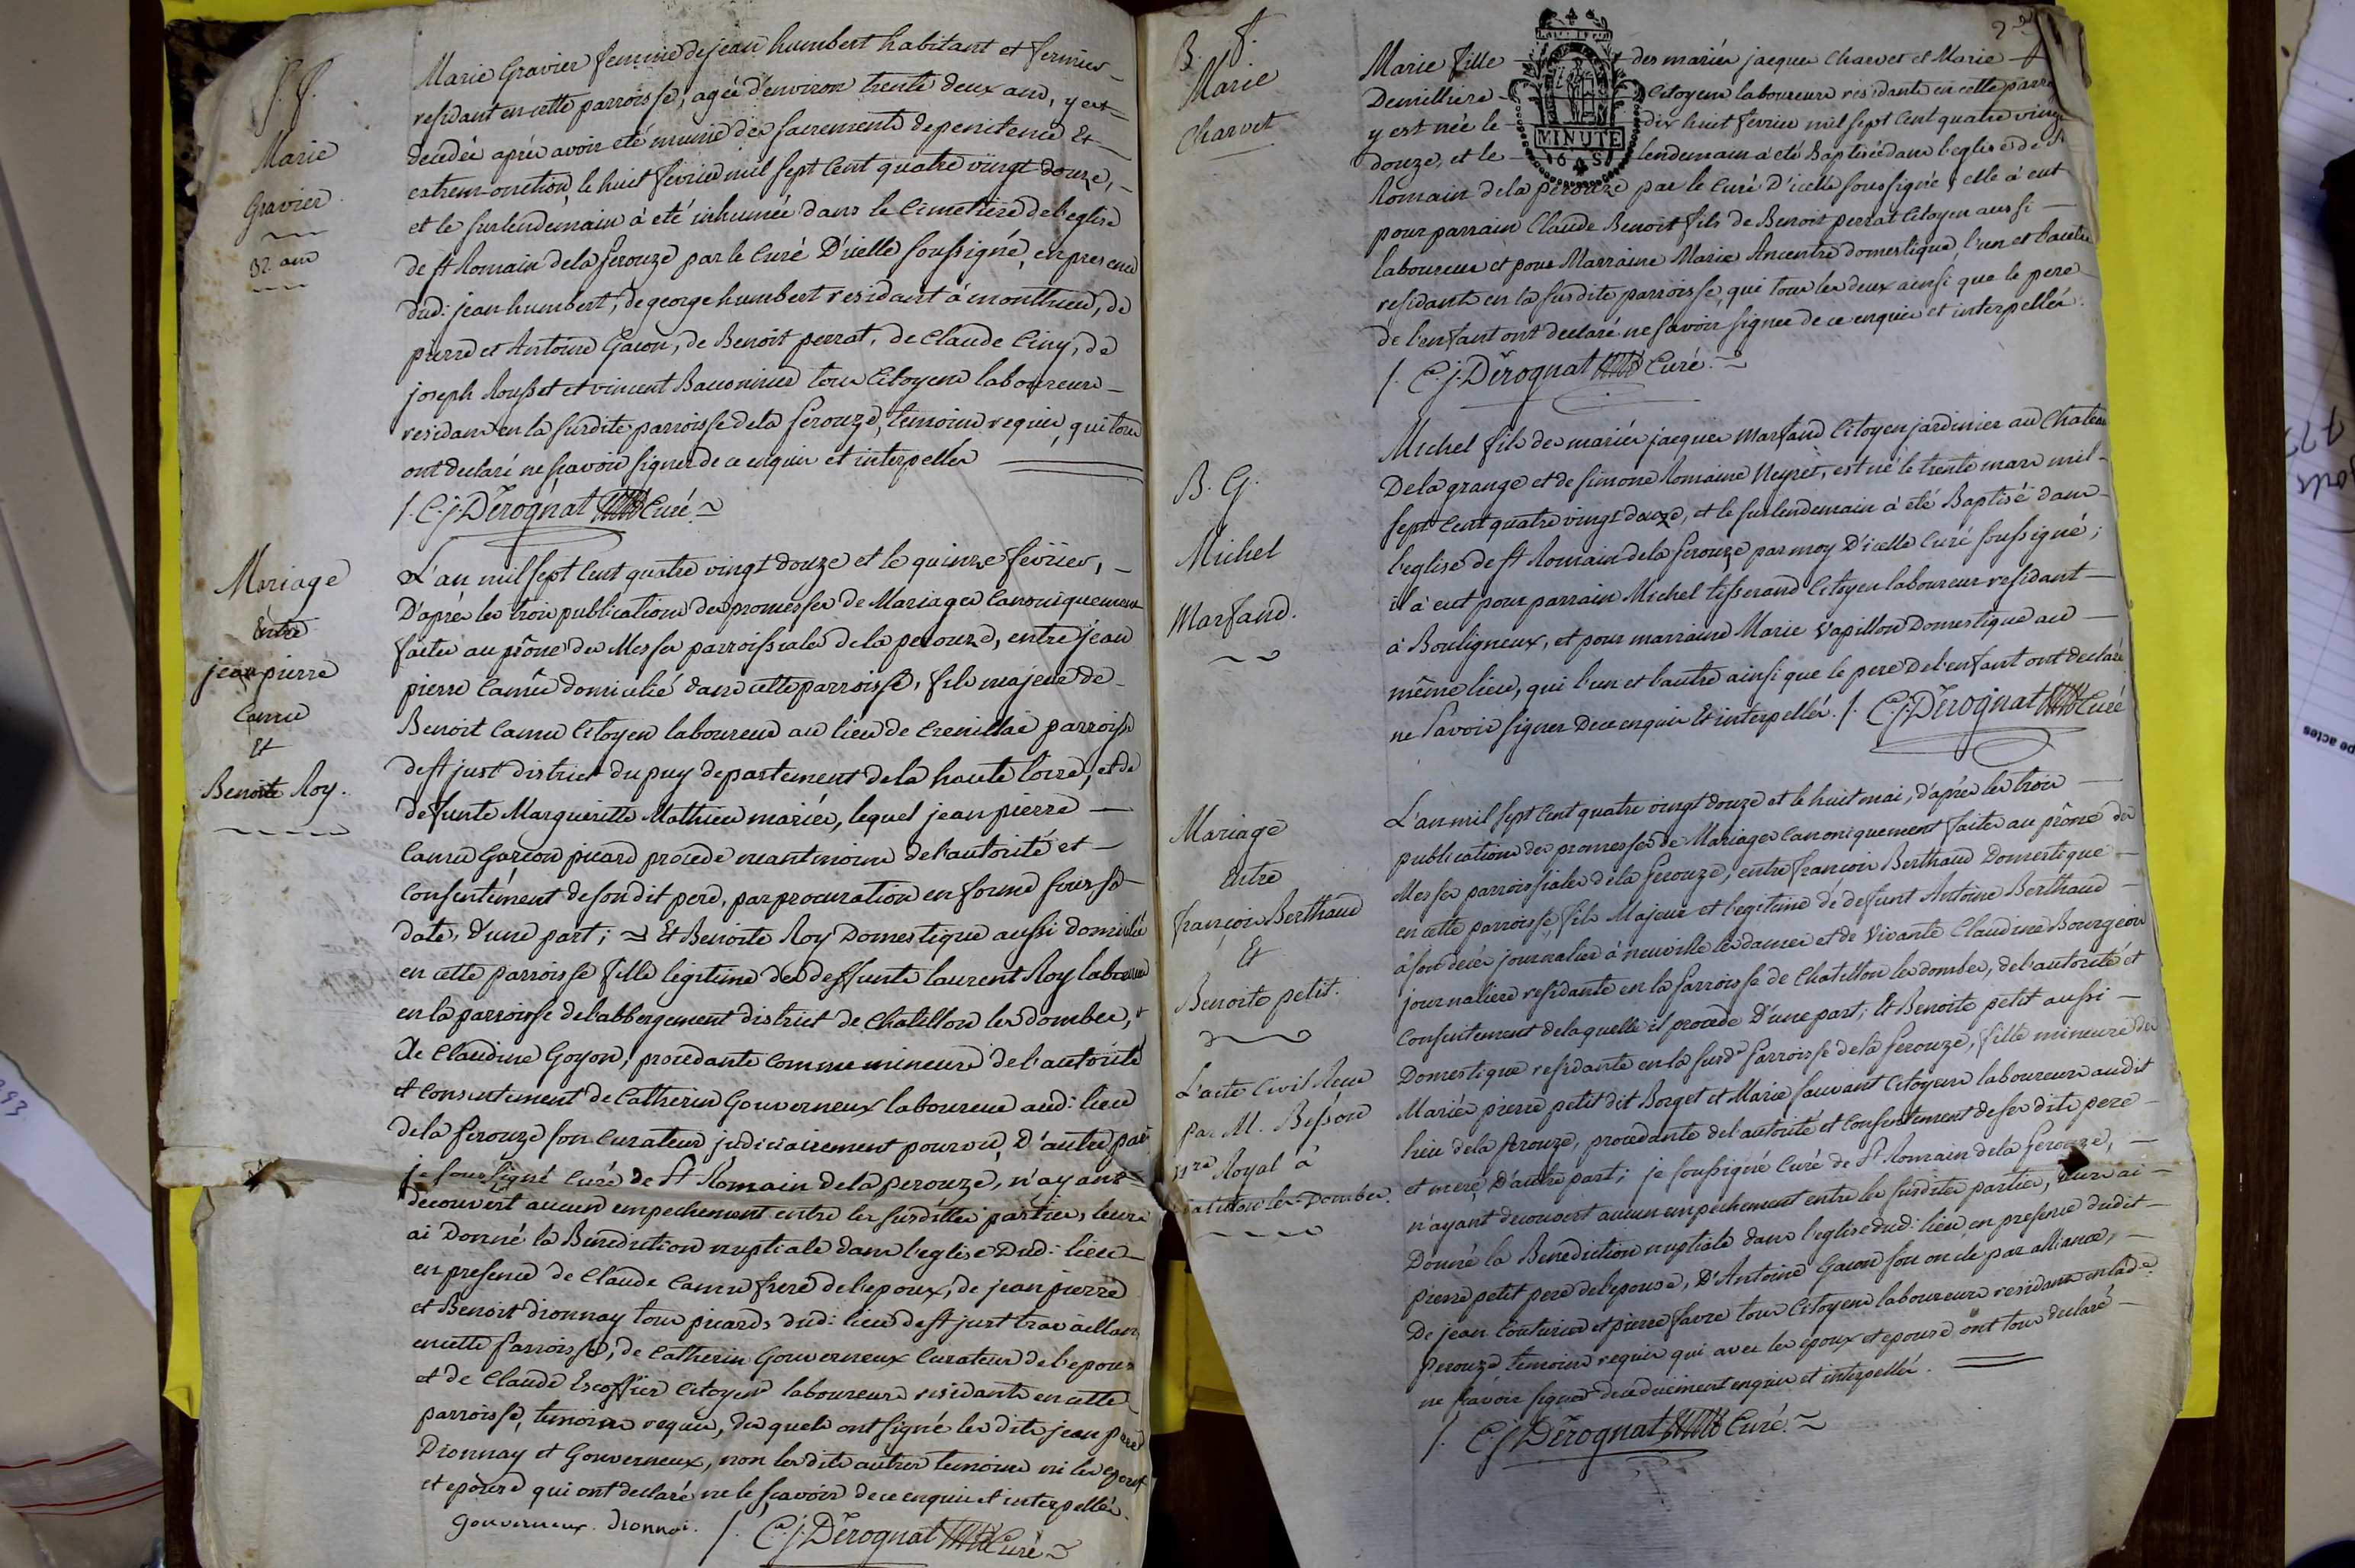 S. f.
Marie
Gravier
32. ans
Marie Gravier femme de jean humbert habitant et fermier
residant en cette parroisse, agée d'environ trente deux ans, y est
decedée aprés avoir été munie des sacrements de penitence Et
extrem-onction, le huit fevrier mil sept Cent quatre vingt douze,
et le surlendemain à eté inhumée dans le Cimetiere de l'eglise
de st Romain de la perouze par le Curé D'icelle soussigné, en presence
dud: jean humbert, de george humbert residant à monthieu, de
pierre et Antoine Gacon, de Benoit perrat, de Claude Ciny, de
joseph Rousset et vincent tous Citoyens laboureurs
residans en la susdite parroisse de la perouze, temoins requis, qui tous
ont declaré ne sçavoir signer de ce enquis et interpellés
/. C. j. Dérognat Curé
Mariage
Entre
jean pierre
Camu
Et
Benoite Roy.
L'an mil sept Cent quatre vingt douze et le quinze fevrier,
D'aprés les trois publications des promesses de Mariages Canoniquement
faites au prône des Messes parroissiales de la perouze, entre jean
pierre Camu domicilié dans cette parroisse, fils majeur de
Benoit Camu Citoyen laboureur au lieu de parroisse
de st just district du puy departement de la haute loire, et de
defunte Margueritte Mathieu mariés, lequel jean pierre
Camu Garçon picard procede neantmoins de l'autorité et
Consentement de son dit pere, par procuration en forme sous sa
date, d'une part; Et Benoite Roy Domestique aussi domiciliée
en cette parroisse fille legitime des deffunts laurent Roy laboureur
en la parroisse de l'abbergement district de Chatillon les dombes, et
de Claudine Goyon, procedante comme mineure de l'autorité
et consentement de Catherin Gouverneux laboureur aud: lieu
de la perouze son Curateur judiciairement pourvu, D'autre part
je soussigné Curé de St Romain de la perouze, n'ayant
decouvert aucun empechement entre les susdittes parties, leurs
ai Donné la Benediction nuptiale dans l'eglise Dud: lieu
en presence de Claude Camu frere de l'epoux, de jean pierre
et Benoit dionnay tous picards dud: lieu de st just travaillans
en cette parroisse, de Catherin Gouverneux Curateur de l'epouse
et de Claude Escoffier Citoyens laboureurs residants en cette
parroisse, temoins requis, des quels ont signé les dits jean pierre
Dionnay et Gouverneux, non les dits autres temoins ni les epoux
et epouse qui ont declaré ne le sçavoir de ce enquis et interpellés.
Gouverneux. dionnai. /. C. j. Dérognat Curé
B. f.
Marie
Charvet
MINUTE
Marie fille des mariés jacques Charvet et Marie
Demilliere Citoyens laboureurs residants en cette parroisse
y est née le dix huit fevrier mil sept Cent quatre vingt
douze, et le lendemain à été Baptisée dans l'eglise de St
Romain de la perouze par le Curé D'icelle soussigné; elle à eut
pour parrain Claude Benoit fils de Benoit perrat Citoyen aussi
laboureur et pour Marraine Marie Ancentre domestique, l'un et l'autre
residants en la susdite parroisse, qui tous les deux ainsi que le pere
de l'enfant ont declaré ne savoir signer de ce enquis et interpellés.
/. C. j. Dérognat Curé.
B. G.
Michel
Marfand.
Michel fils des mariés jacques Marfand Citoyen jardinier au Chateau
De la grange et de simone Romaine Neyret, est né le trente mars mil
sept Cent quatre vingt douze, et le surlendemain à été Baptisé dans
l'eglise de st Romain de la perouze par moy D'icelle Curé soussigné;
il à eut pour parrain Michel tisserand Citoyen laboureur residant
à Bouligneux, et pour marraine Marie Vapillon Domestique au
même lieu, qui l'un et l'autre ainsi que le pere De l'enfant ont declaré
ne savoir signer De ce enquis Et interpellés. /. C. j. Dérognat Curé
Mariage
Entre
françois Berthaud
Et
Benoite petit.
L'acte Civil Reçu
par M. Besson
Nre Royal à
Chatillon les Dombes.
L'an mil sept Cent quatre vingt douze et le huit mai, d'aprés les trois
publications des promesses de Mariages Canoniquement faites au prône des
Messes parroissiales de la perouze, entre françois Berthaud Domestique
en cette parroisse, fils Majeur et legitime de defunt Antoine Berthaud
à son decés journalier à neuville les dames et de Vivante Claudine Bourgeois
journaliere residante en la parroisse de Chatillon les dombes, de l'autorité et
Consentement de laquelle il procede D'une part; Et Benoite petit aussi
Domestique residante en la susd.e parroisse de la perouze, fille mineure des
Mariés pierre petit dit Borget et Marie sauvant Citoyens laboureurs audit
lieu de la perouze, procedante de l'autorité et Consentement de ses dits pere
et mere D'autre part; je soussigné Curé de St Romain de la perouze,
n'ayant decouvert aucun empechement entre les susdites parties, leurs ai
Donné la Benediction nuptiale dans l'eglise dud: lieu, en presence dudit
pierre petit pere de l'epouse, D'Antoine Gacon son oncle par alliance,
De jean Couturier et pierre favre tous Citoyens laboureurs residans en lad.e
perouze temoins requis qui avec les epoux et epouse ont tous declaré
ne sçavoir signer de ce duement enquis et interpellés.
/. C. j. Dérognat Curé.